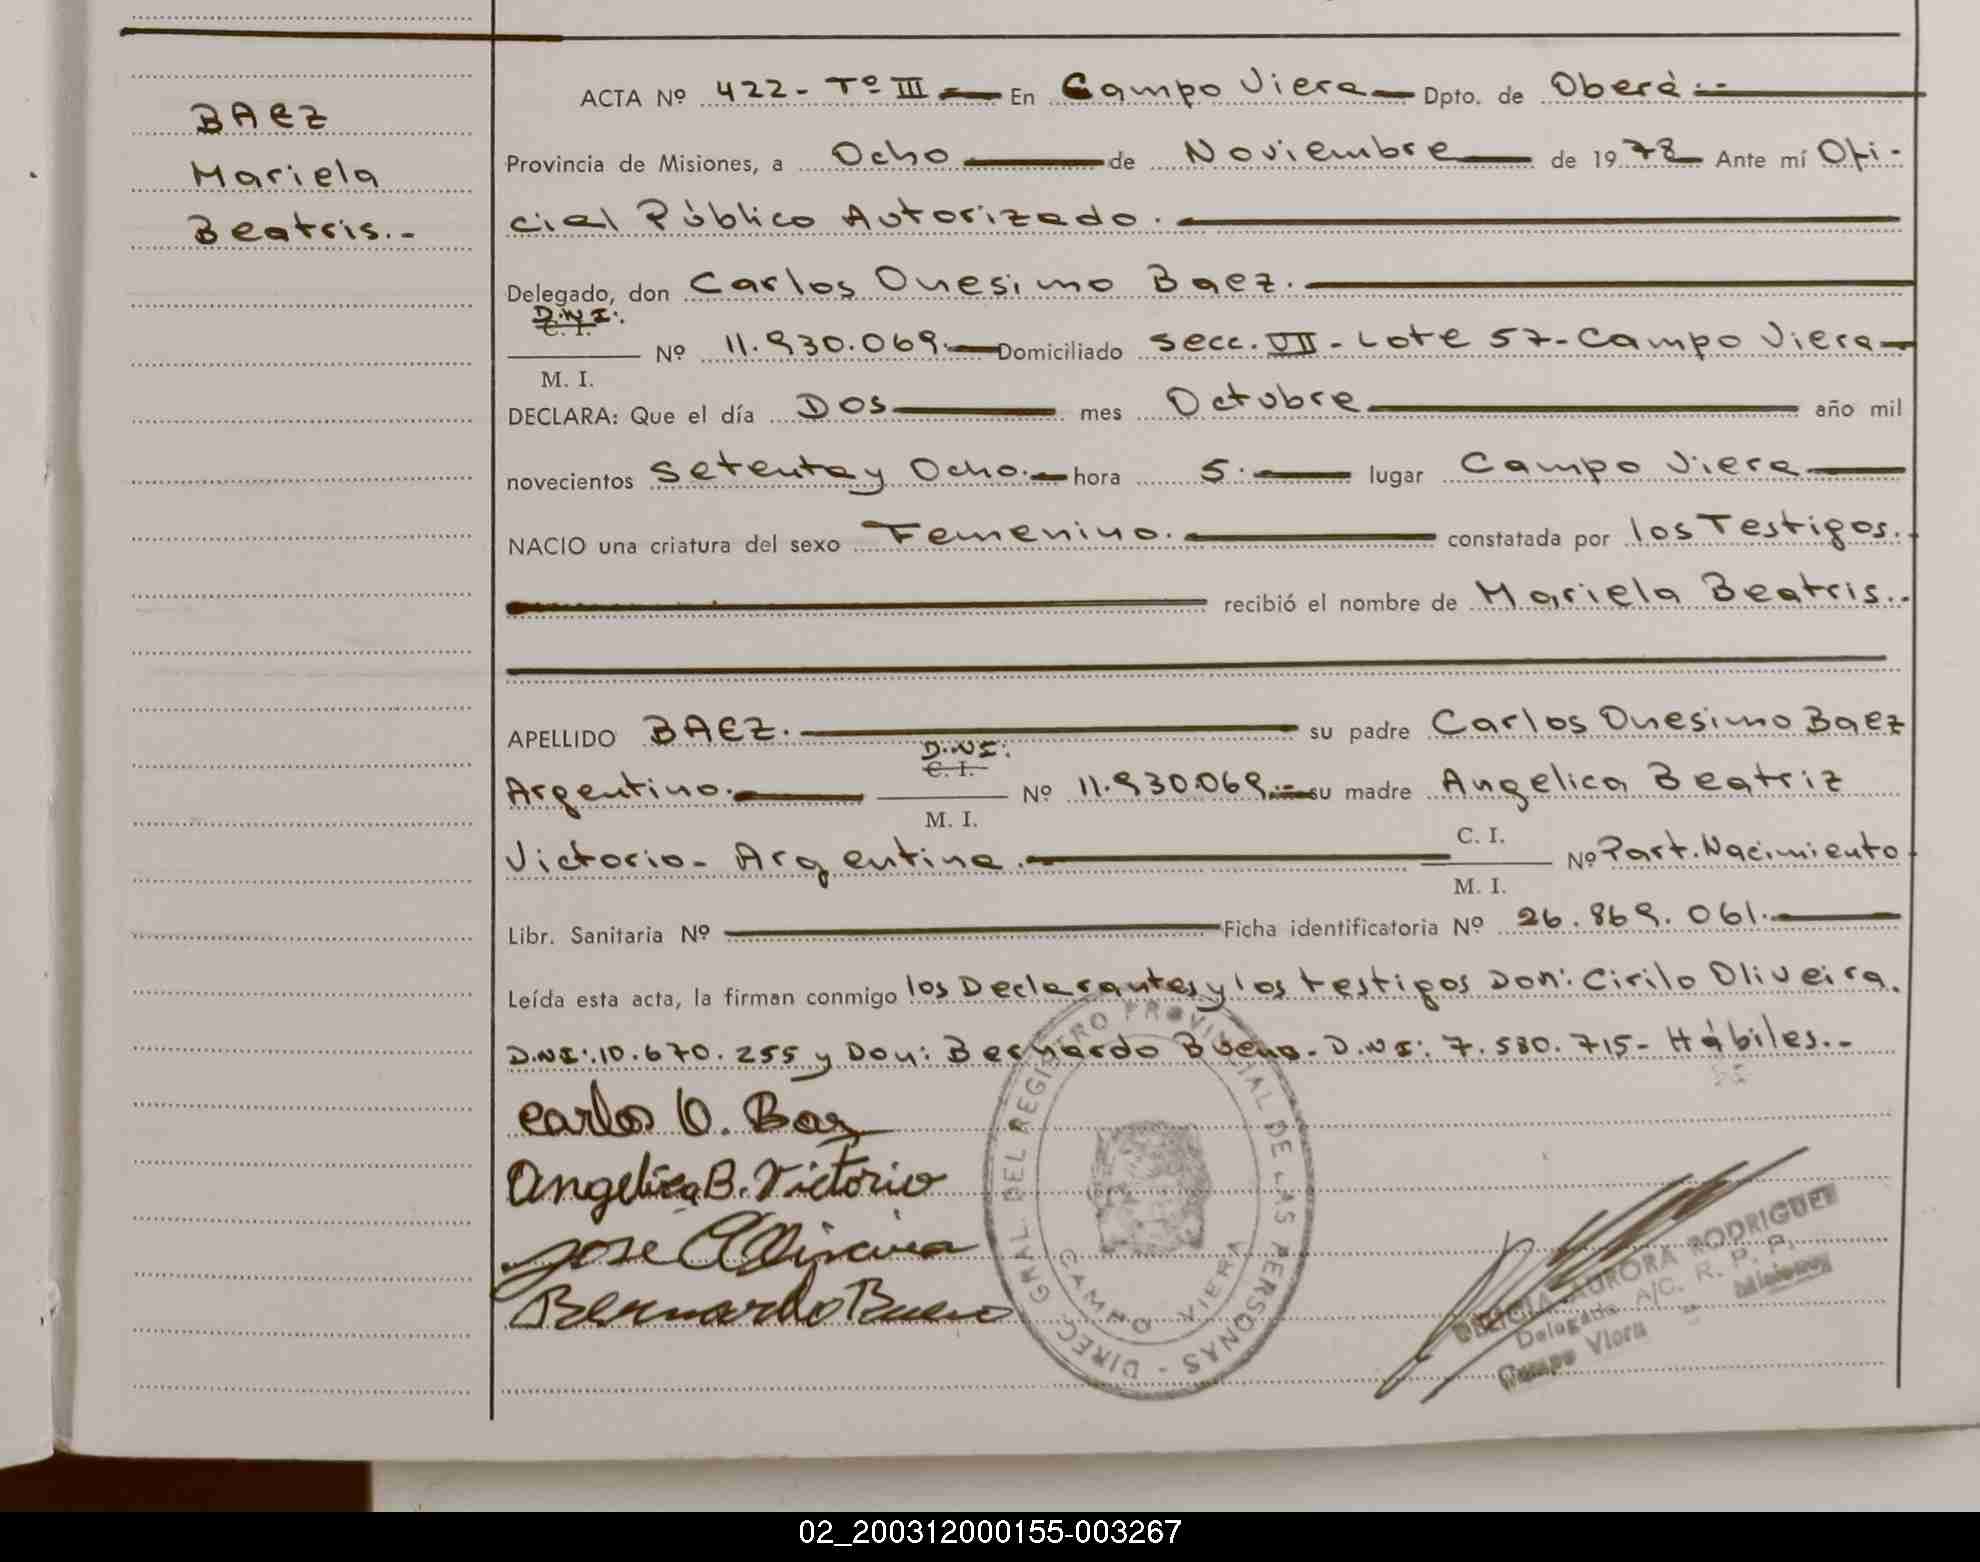 BAEZ
Mariela
Beatris.-
ACTA Nº 422- Tº III En Campo Viera Dpto. de Oberá.-
Provincia de Misiones, a Ocho de Noviembre de 1978 Ante mí Ofi-
cial Público Autorizado.
Delegado, don Carlos Onesimo Baez.
D.N.I:.
C. I.
M. I.
Nº 11.930.069.- Domiciliado Secc. VII - Lote 57- Campo Viera
DECLARA: Que el día Dos mes Octubre año mil
novecientos Setenta y Ocho.- hora 5. lugar Campo Viera
NACIO una criatura del sexo Femenino. constatada por los Testigos.
recibió el nombre de Mariela Beatris.-
APELLIDO BAEZ. su padre Carlos Onesimo Baez
D.N.I:
C. I.
Argentino. Nº 11.930.069.- su madre Angelica Beatriz
M. I.
C. I.
Victorio- Argentina. Nº Part. Nacimiento
M. I.
Libr. Sanitaria Nº Ficha identificatoria Nº 26.869.061.
Leída esta acta, la firman conmigo los Declarantes y los testigos Don: Cirilo Oliveira.
D.N.I:.10.670.255 y Don: Bernardo Bueno- D.N.I: 7.580.715- Hábiles.-
Carlos O. Baez
Angelica B. Victorio
Jose Oliveira
Bernardo Bueno
DIREC. GRAL. DEL REGISTRO PROVINCIAL DE LAS PERSONAS -
CAMPO VIERA
AURORA RODRIGUEZ
Delegada A/C. R. P. P.
Campo Viera Misiones
02_200312000155-003267